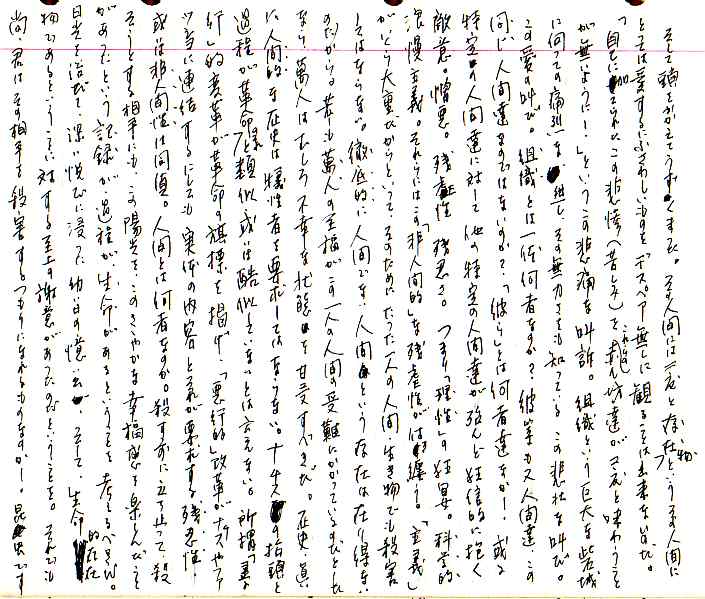 そして頭をかかえてうずくまる。その人間には一応と存在物というその人間に
とっては愛するにふさわしいものをデスペア無しに観ることは出来ないのだ。
「自らに加えられたこの悲惨(苦しみ)を これ以上 坊達が 味わうこと
が無いように!」というこの悲痛な叫訴。組織という巨大な
に向っての痛烈な その無力さをも知っている この悲壮な叫び。
この愛の叫び。組織とは一体何者なのか? 彼等も又人間達、この
同じ人間達なのではないのか?「彼ら」とは何者達なのか!或る
特定の人間達に対して他の特定の人間達が 狂信的に抱く
敵意。憎悪 残虐性 残忍さ。つまり「理性」の狂宴。科学的
浪漫主義。それらにはこの「非人間的」な残虐性が 纏う。「主義」
がいくら大事だからといって、そのためにたった一人の人間・生き物でも殺害
してはならない。徹底的に人間です。人間という存在は在り得ない
のだから。若しも萬人の至福がこの一人の人間の受難にかかっているのだとした
なら萬人はむしろ不幸な状態を甘受すべきだ。歴史・真
に人間的な歴史は犠牲者を要求してはならない。ナチスの指頭と
過程が「革命」と類似或いは酷似していないとは言えない。所謂「善
行」的変革が革命の旗標を掲げ、「悪行的」改革がナチズムやファ
ッショに連結するにしても 実体の内容とそれが要求する残忍性・
或は非人間性は同価。人間とは何者なのか。殺す前に立ち止って、殺
そうとする相手にも、この陽光を、このささやかな幸福感を楽しんだこと
があったという記録が過程が、生命があるということを考えるべきだ。
日光を浴びて、深い悦びに浸った幼い日の憶い出。そして、生命的存在
物であるということに対する至上の謝意があったのだということを。それでも
尚、君はその相手を殺害するつもりになれるものなのか!。昆虫です